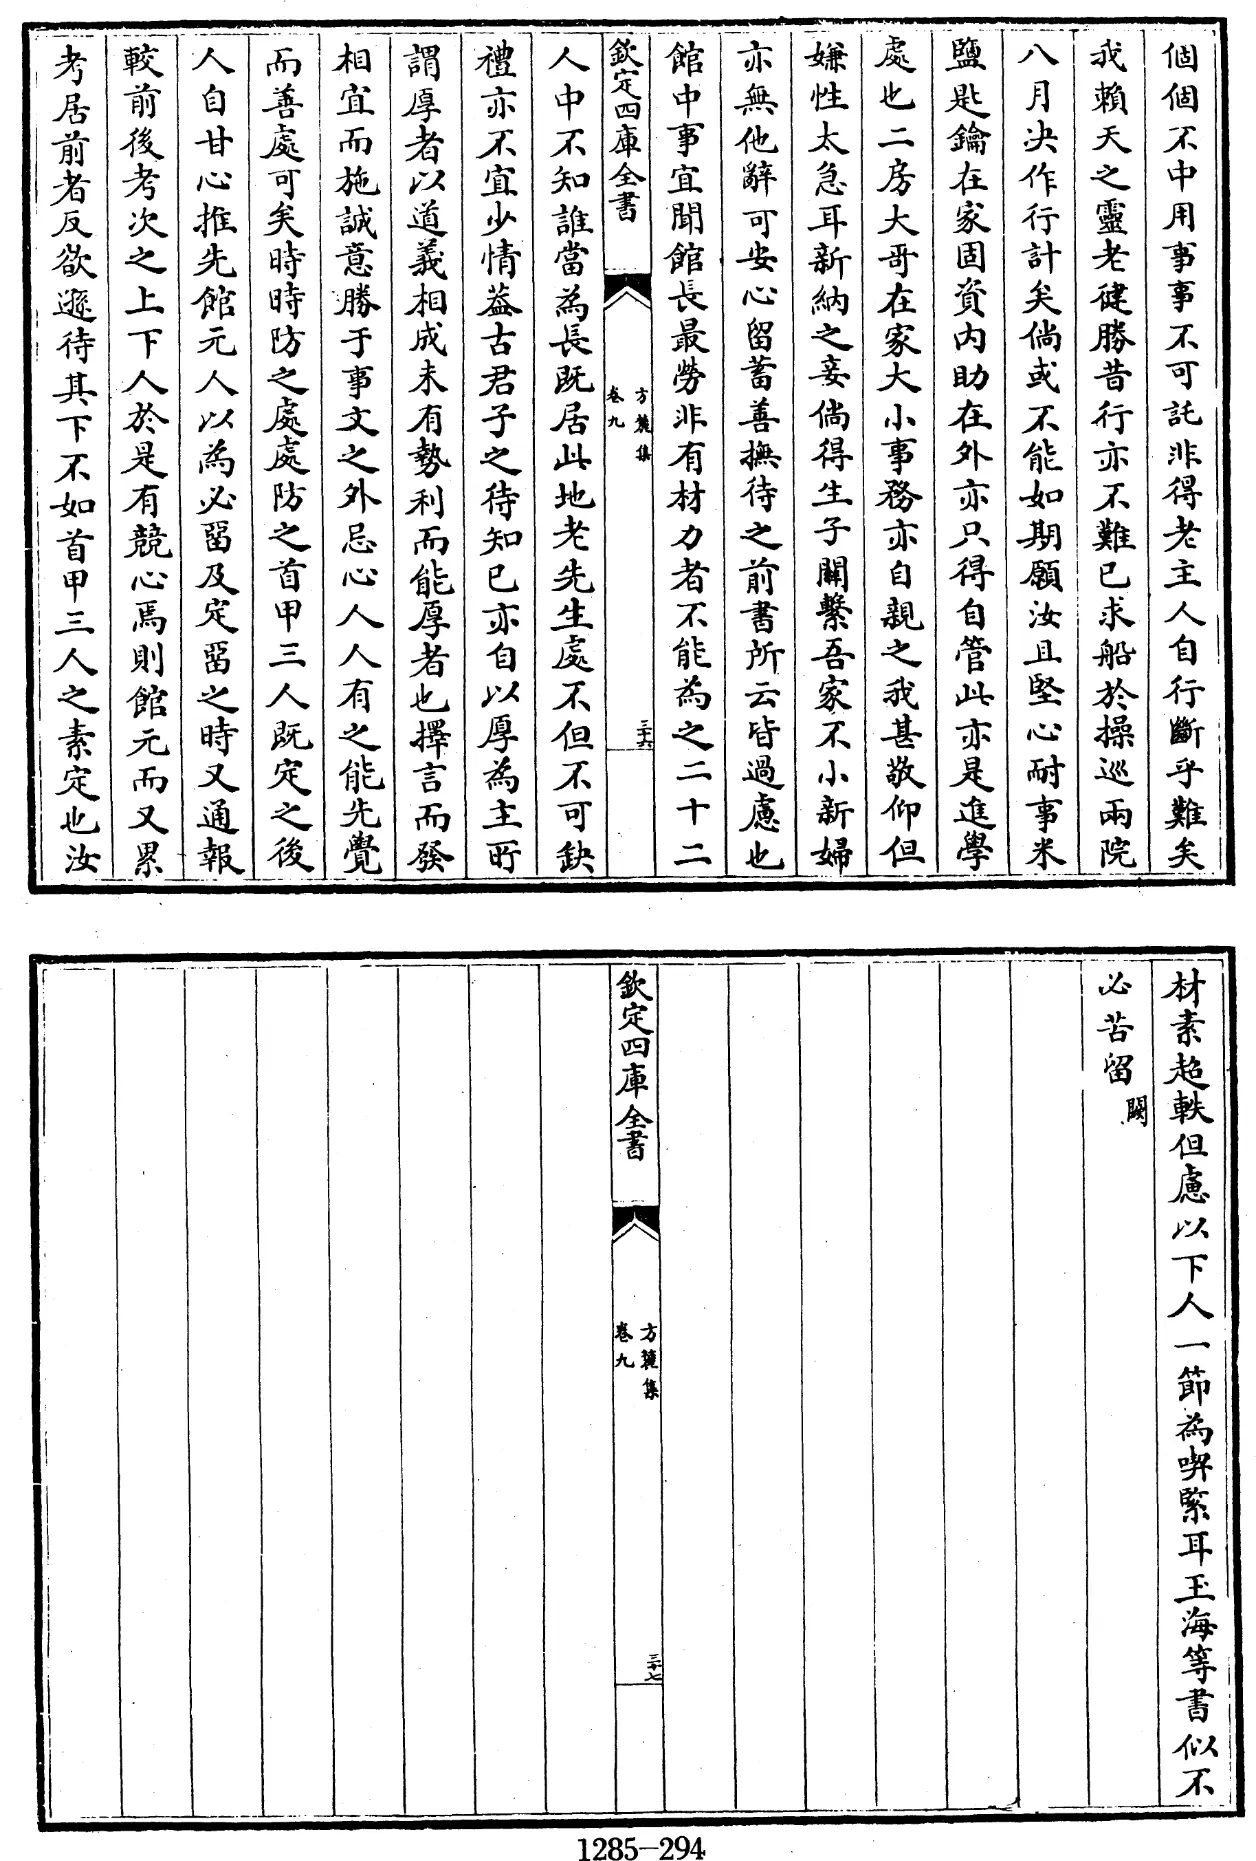 個個不中用事事不可託非得老主人自行斷乎難矣
我賴天之靈老健勝昔行亦不難已求船於操巡兩院
八月决作行計矣倘或不能如期願汝且堅心耐事米
鹽匙鑰在家固資内助在外亦只得自管此亦是進學
處也二房大哥在家大小事務亦自親之我甚敬仰但
嫌性太急耳新納之妾倘得生子關繫吾家不小新婦
亦無他辭可安心留蓄善撫待之前書所云皆過慮也
館中事宜聞館長最勞非有材力者不能為之二十二
欽定四庫全書
方麓集
卷九
三十六
人中不知誰當為長既居此地老先生處不但不可缺
禮亦不宜少情葢古君子之待知已亦自以厚為主所
謂厚者以道義相成未有勢利而能厚者也擇言而發
相宜而施誠意勝于事文之外忌心人人有之能先覺
而善處可矣時時防之處處防之首甲三人既定之後
人自甘心推先館元人以為必留及定留之時又通報
較前後考次之上下人於是有競心焉則館元而又累
考居前者反欲遜待其下不如首甲三人之素定也汝
材素超軼但慮以下人一節為喫緊耳玉海等書似不
必苦留闕
欽定四庫全書
方麓集
卷九
三十七
1285-294